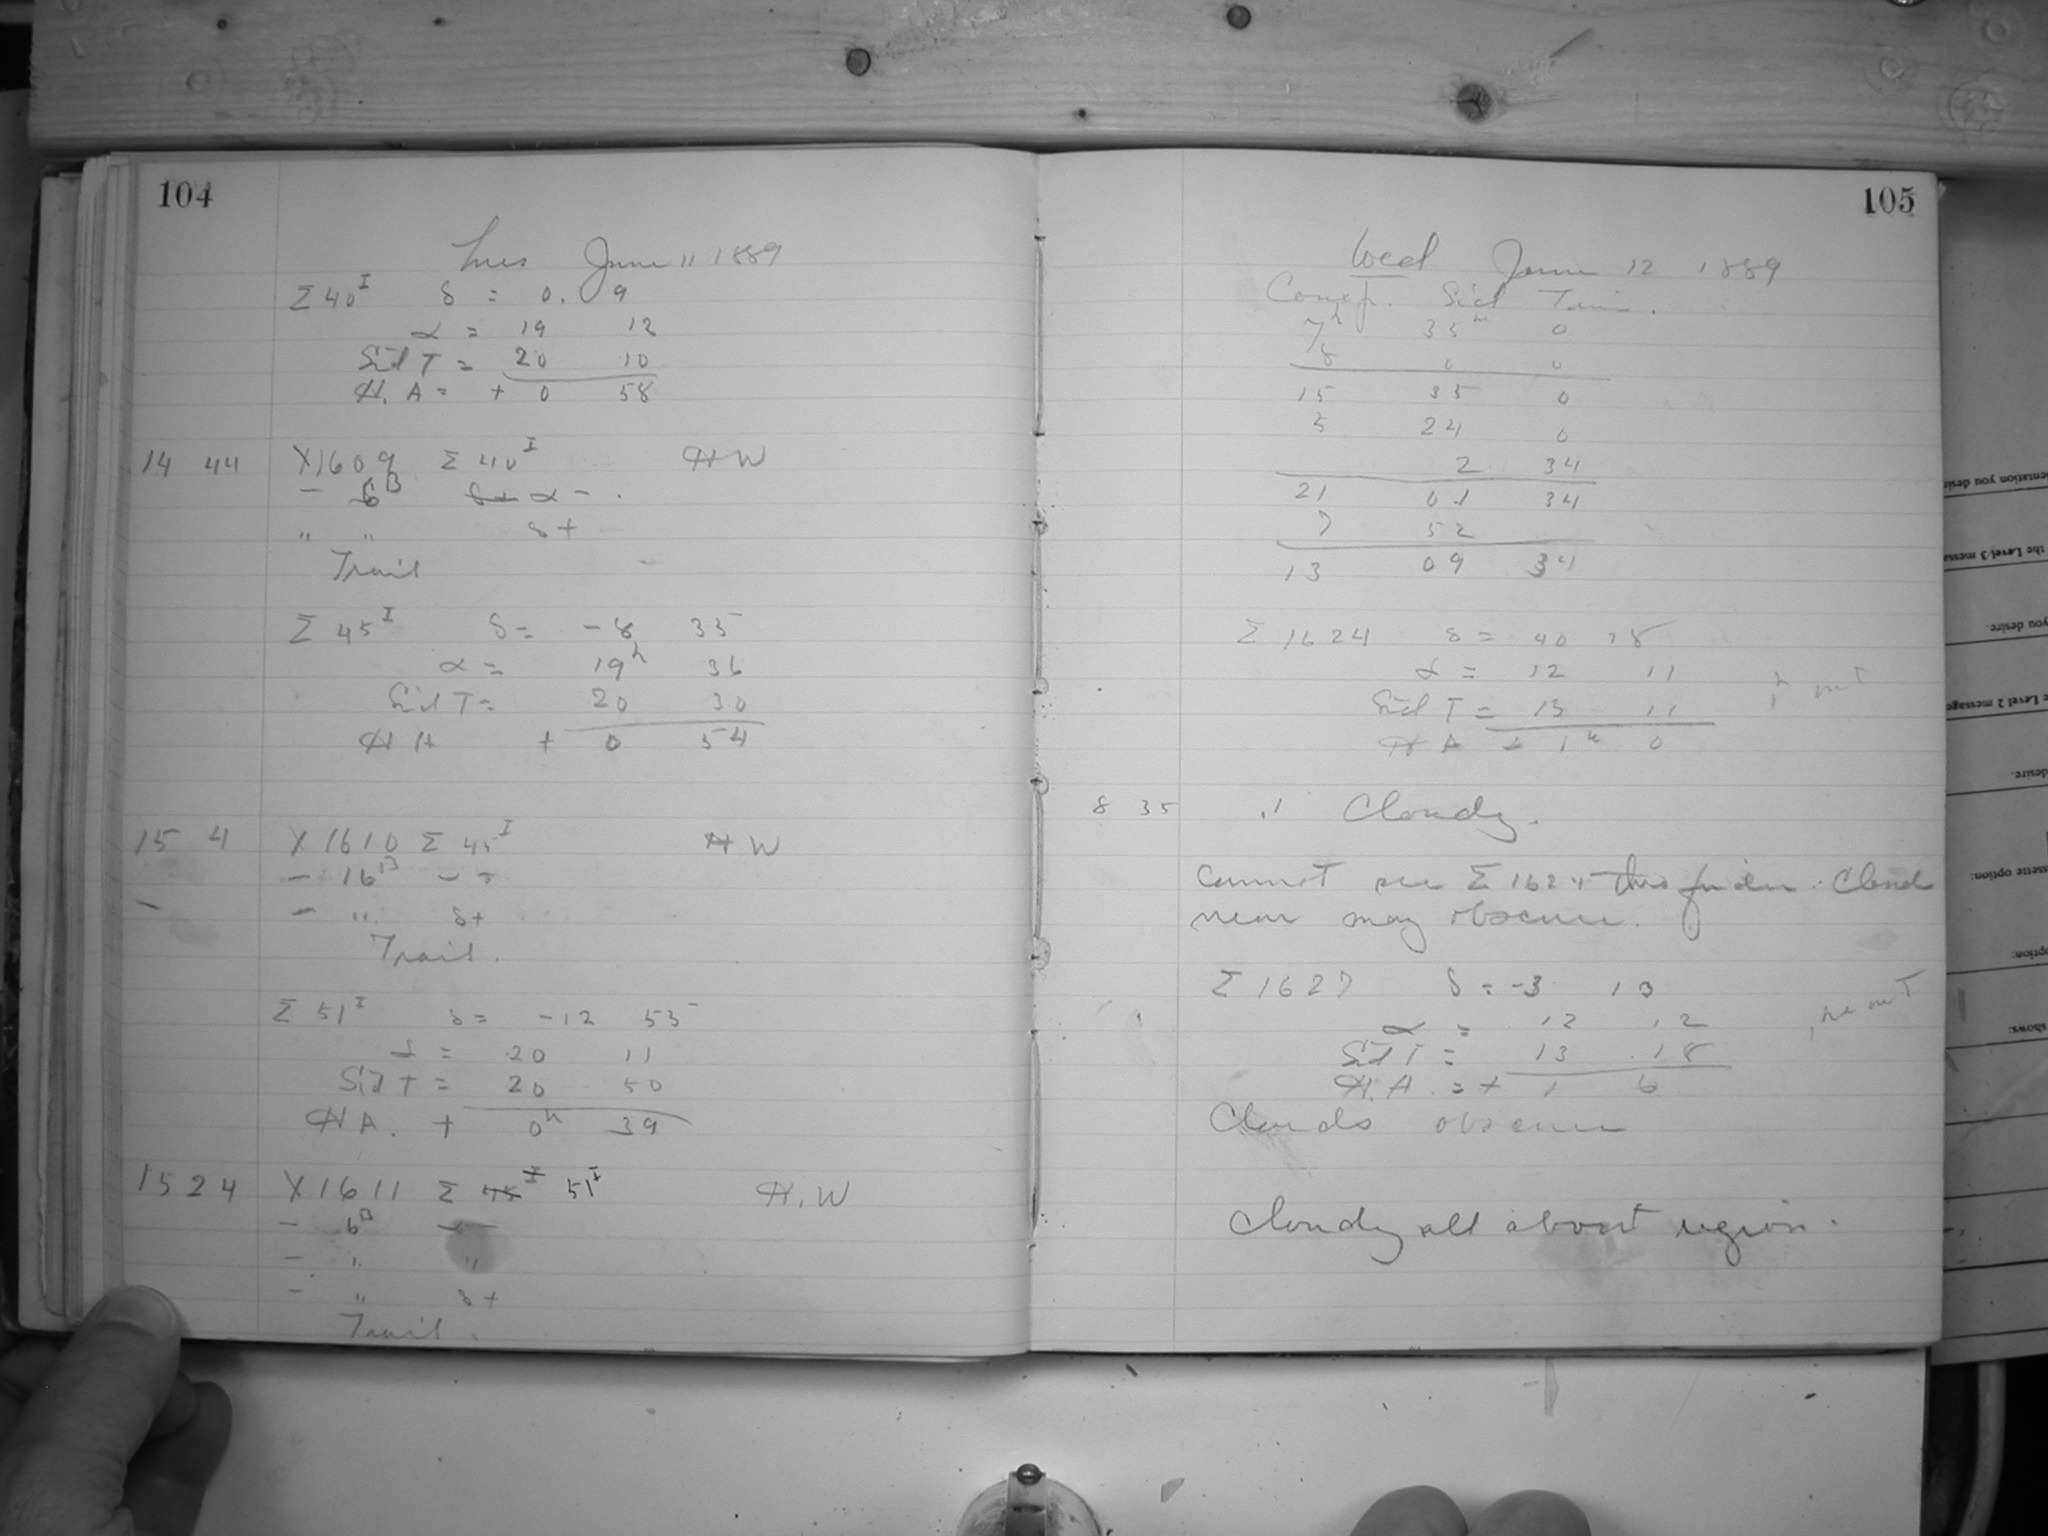 104
Tues June 11 1889
Σ 40^I δ = 0. 9
α = 19 12
Sid T = 20 10
H. A = + 0 58
14 44 X1609 Σ 40^I HW
- 6^B α -
" " δ +
Trail
Σ 45^I δ = -8 35
α = 19^h 36
Sid T = 20 30
H A + 0 54
15 4 X 1610 Σ 45^I HW
- 16^B
- " δ +
Trail.
Σ 51^I δ = -12 55
α = 20 11
Sid T = 20 50
H A. + 0^h 39
15 24 X1611 Σ 45^I 51^I H. W
- 6^B α -
- " "
- " δ +
Trail.
105
Wed June 12 1889
Comp. Sid Time.
7^h 35^m 0
8 0 0
15 35 0
5 24 0
2 34
21 01 34
7 52
13 09 34
Σ 1624 δ = 40 18
α = 12 11
Sid T = 13 11
H A + 1^h 0
8 35 Cloudy.
Cannot see Σ 1624 thro finder. Cloud
near may obscure.
Σ 1627 δ = -3 13
α = 12 12
Sid T = 13 18
H. A. = + 1 6
Clouds obscure
Cloudy all about region.